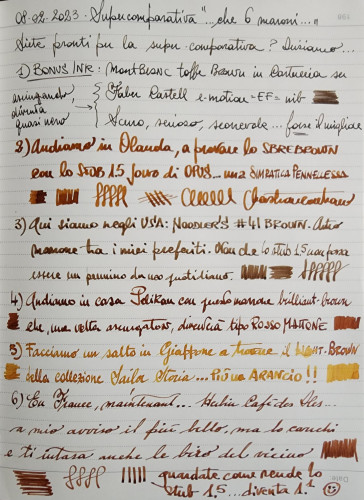 08-02-2023 - Supercomparativa "...che 6 maroni..."
Siete pronti per la super comparativa? Iniziamo...
1) BONUS INK: MONTBLANC toffee Brown in cartuccia su
asciugando diventa quasi nero
Faber Castell e-motion =EF= nib
Scuro, serioso, ... forse il migliore
2) Andiamo in Olanda, a provare lo SBREBROWN
con lo STUB 1.5 Jowo di OPUS... una SIMPATICA PENNELLESSA
3) Qui siamo negli USA: NOODLER'S #41 BROWN. Altro
marrone tra i miei preferiti. Non che lo stub 1.5 non possa
essere un pennino da uso quotidiano.
4) Andiamo in casa Pelikan con questo marrone brilliant-brown
che, una volta asciugatosi, diventa tipo ROSSO MATTONE
5) Facciamo un salto in Giappone a trovare il LIGHT-BROWN
della collezione Sailor Storia... PIÙ UN ARANCIO!!
6) En France, maintenant... Herbin Café des Iles...
a mio avviso il più bello, ma lo carichi
e ti intasa anche le biro del vicino
guardate come rende lo
stub 1.5... diventa 1.1